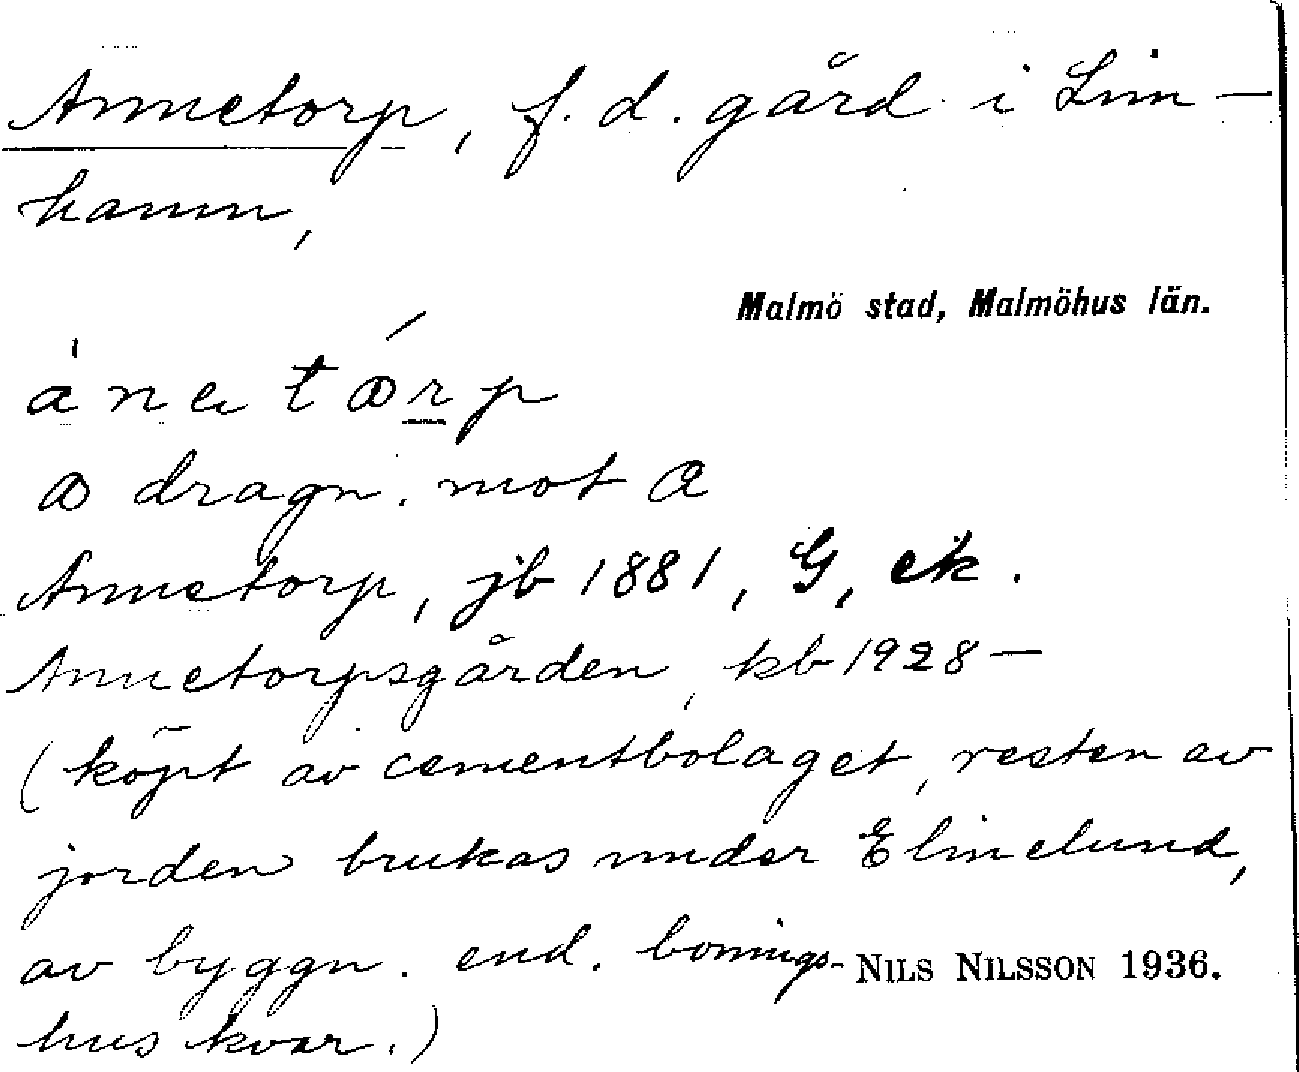 Annetorp, f. d. gård i Lim-
hamn,
Malmö stad, Malmöhus län.
dragn. mot
Annetorp, jb 1881, G, ek.
Annetorpsgården, kb 1928–
(köpt av cementbolaget, resten av
jorden brukas under Elinelund,
av byggn. end. bonings-
hus kvar.)
NILS NILSSON 1936.